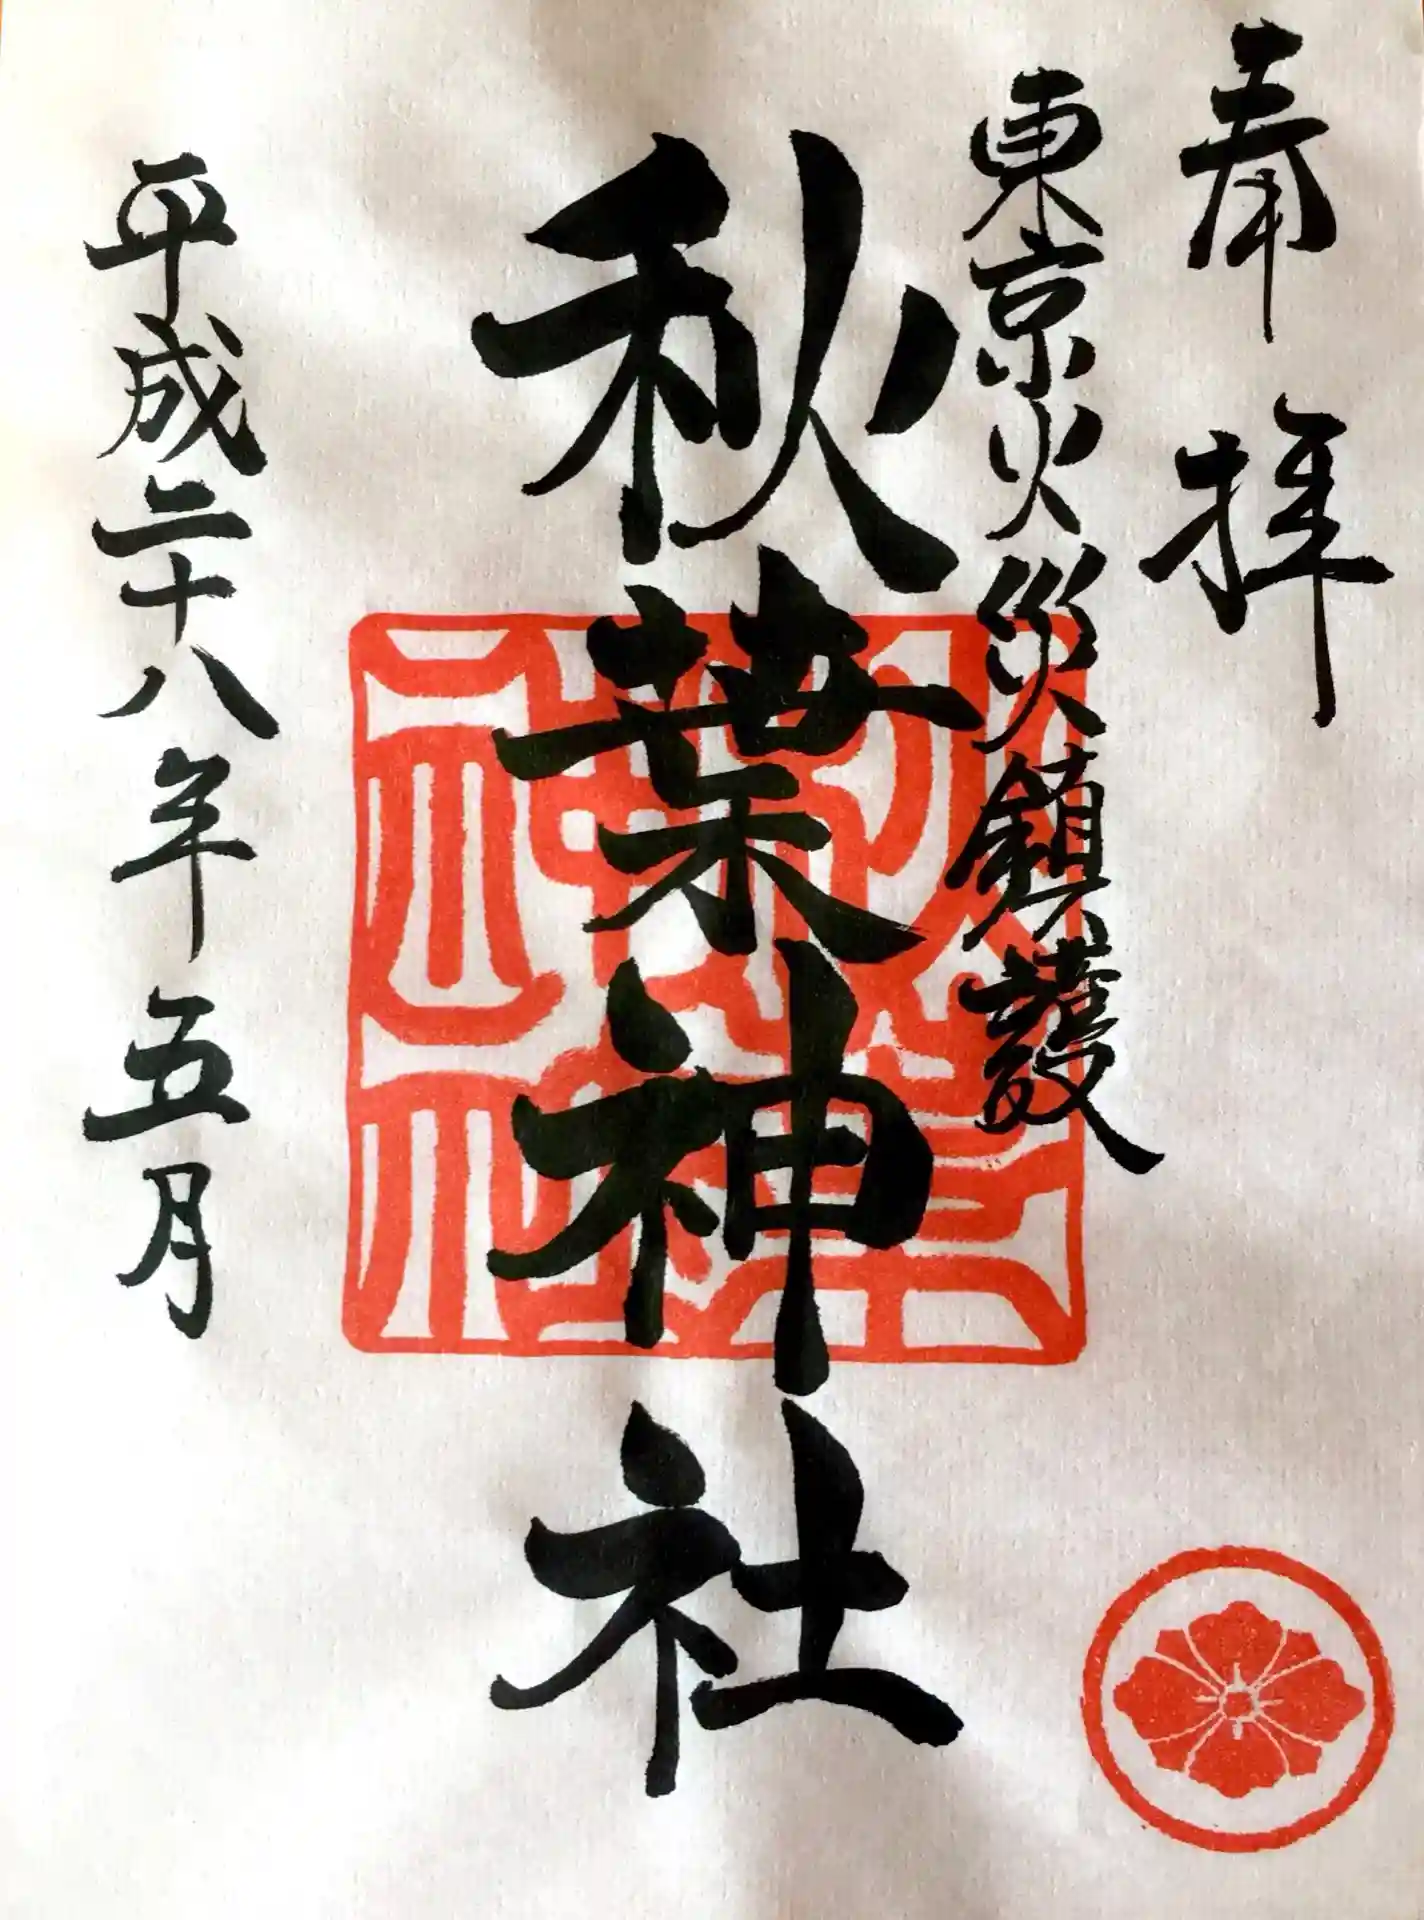 奉拝
東京火災鎮護
秋葉神社
平成二十八年五月
秋葉神社